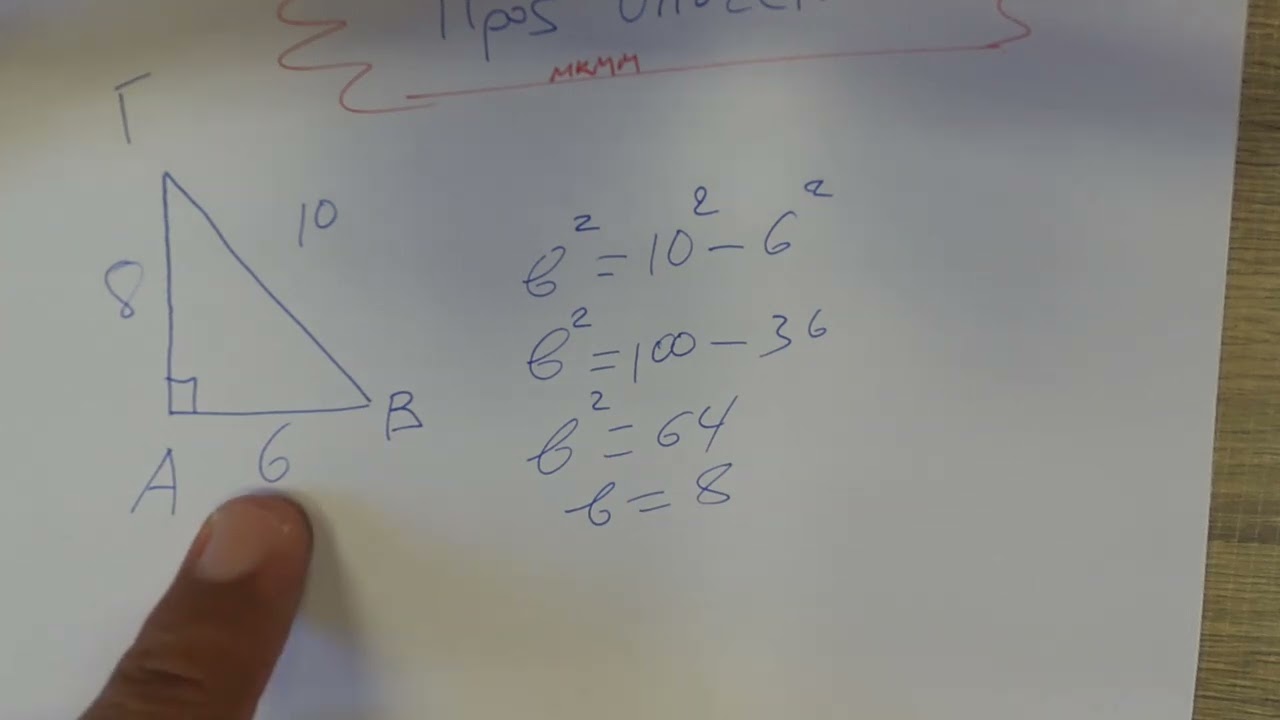 Προς
MKMM
Γ
10
8
B
A
6
β² = 10² - 6²
β² = 100 - 36
β² = 64
β = 8